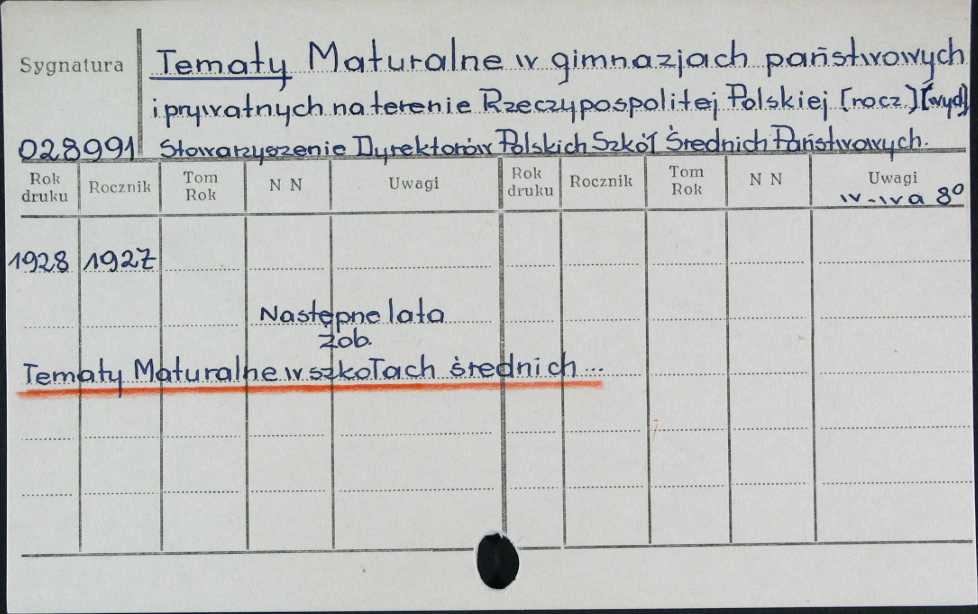 Sygnatura Tematy Maturalne w gimnazjach państwowych
i prywatnych na terenie Rzeczypospolitej Polskiej [rocz.] [wyd]
028991 Stowarzyszenie Dyrektorów Polskich Szkół Średnich Państwowych.
Rok druku Rocznik Tom Rok N N Uwagi Rok druku Rocznik Tom Rok N N Uwagi
w-wa 8°
1928 1927
Następne lata
zob.
Tematy Maturalne w szkołach średnich ...